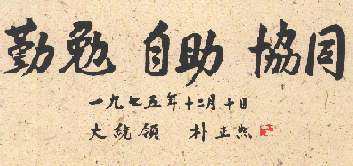 勤勉 自助 協同
一九七五年十二月十日
大統領 朴正熙